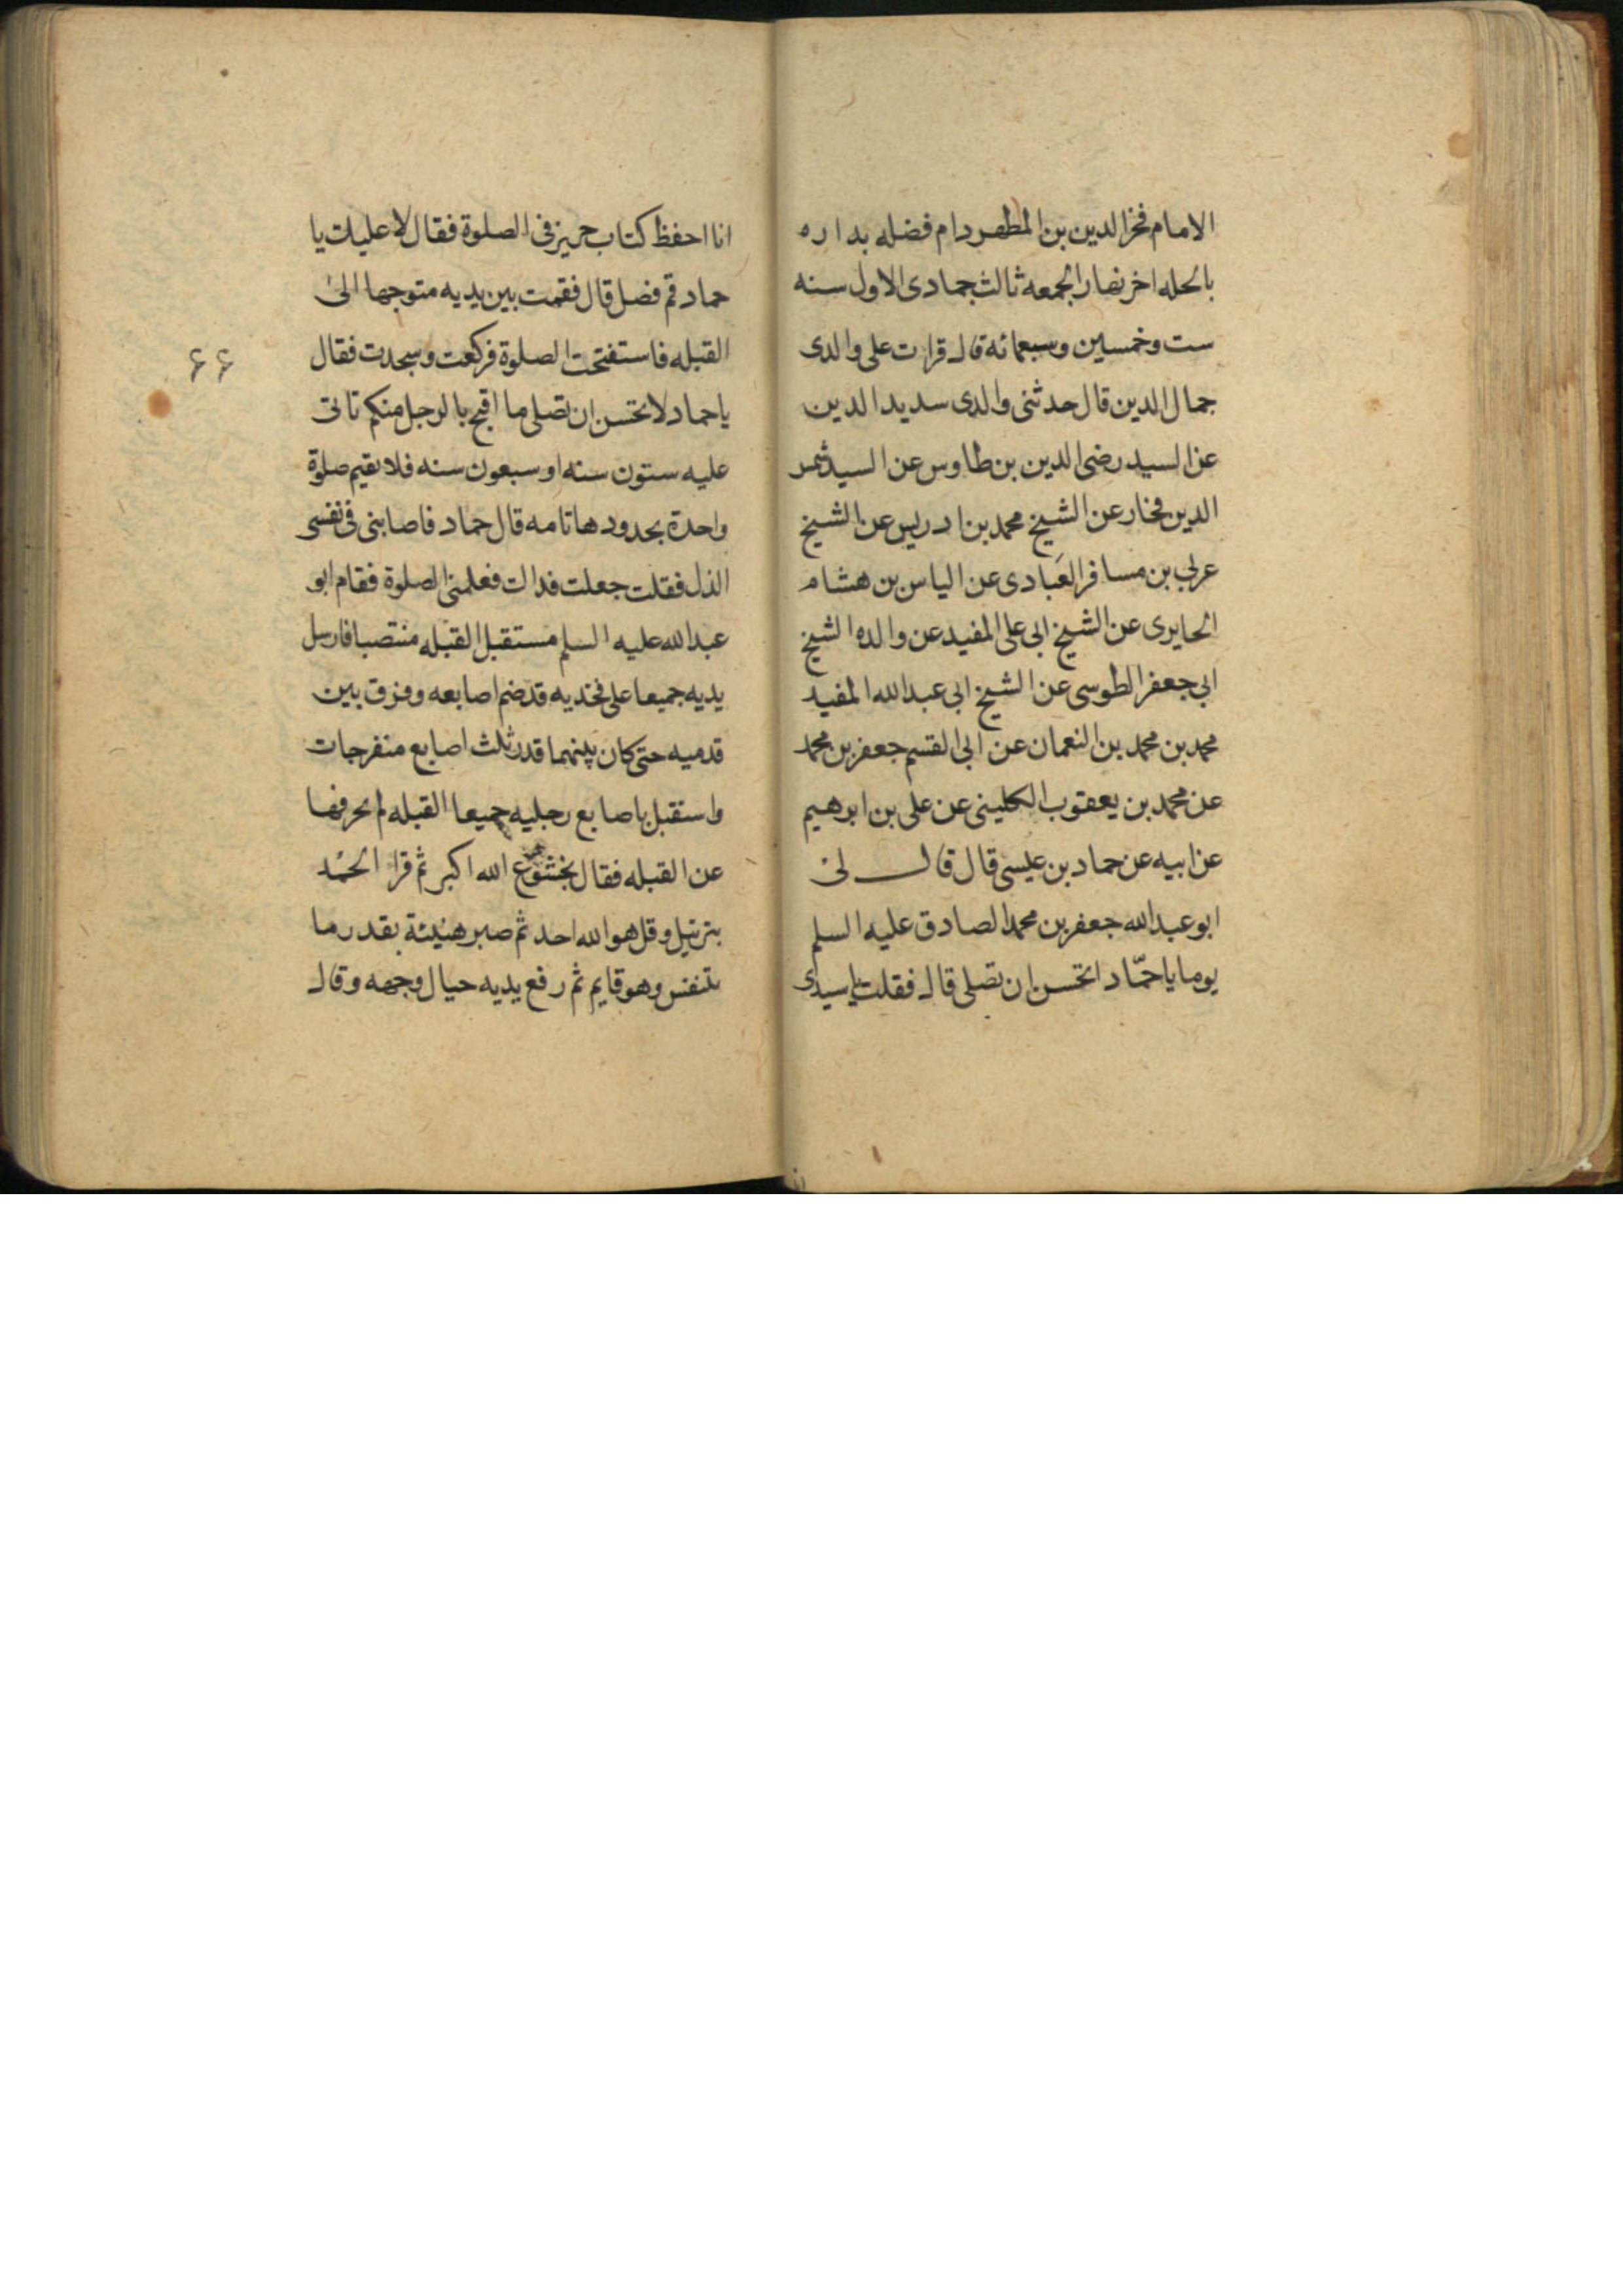 الامام فخر الدين بن المطهر دام فضله بداره
بالحله اخر نهار الجمعه ثالث جمادى الاول سنه
ست وخمسين وسبعمائة قال قرات على والدى
جمال الدين قال حدثنى والدى سديد الدين
عن السيد رضى الدين بن طاوس عن السيد شمس
الدين فخار عن الشيخ محمد بن ادريس عن الشيخ
عربى بن مسافر العَبادى عن الياس بن هشام
الحايرى عن الشيخ ابى على المفيد عن والده الشيخ
ابى جعفر الطوسى عن الشيخ ابى عبد الله المفيد
محمد بن محمد بن النعمان عن ابى القسم جعفر بن محمد
عن محمد بن يعقوب الكلينى عن على بن ابرهيم
عن ابيه عن حماد بن عيسى قال قال لى
ابو عبد الله جعفر بن محمد الصادق عليه السلم
يوما يا حمّاد اتحسن ان تصلى قال فقلت يا سيدى
انا احفظ كتاب حريز فى الصلوة فقال لا عليك يا
حماد قم فصل قال فقمت بين يديه متوجها الى
القبله فاستفتحت الصلوة فركعت وسجدت فقال
يا حماد لا تحسن ان تصلى ما اقبح بالرجل منكم تاتى
عليه ستون سنه او سبعون سنه فلا يقيم صلوة
واحدة بحدودها تامه قال حماد فاصابنى فى نفسى
الذل فقلت جعلت فداك فعلمنى الصلوة فقام ابو
عبد الله عليه السلم مستقبل القبله منتصبا فارسل
يديه جميعا على فخذيه قد ضم اصابعه وفرق بين
قدميه حتى كان بينهما قدر ثلث اصابع منفرجات
واستقبل باصابع رجليه جميعا القبله لم يحرفها
عن القبله فقال بخشوع الله اكبر ثم قرا الحمد
بترتيل وقل هو الله احد ثم صبر هنيئة بقدر ما
يتنفس وهو قايم ثم رفع يديه حيال وجهه وقال
۶۶